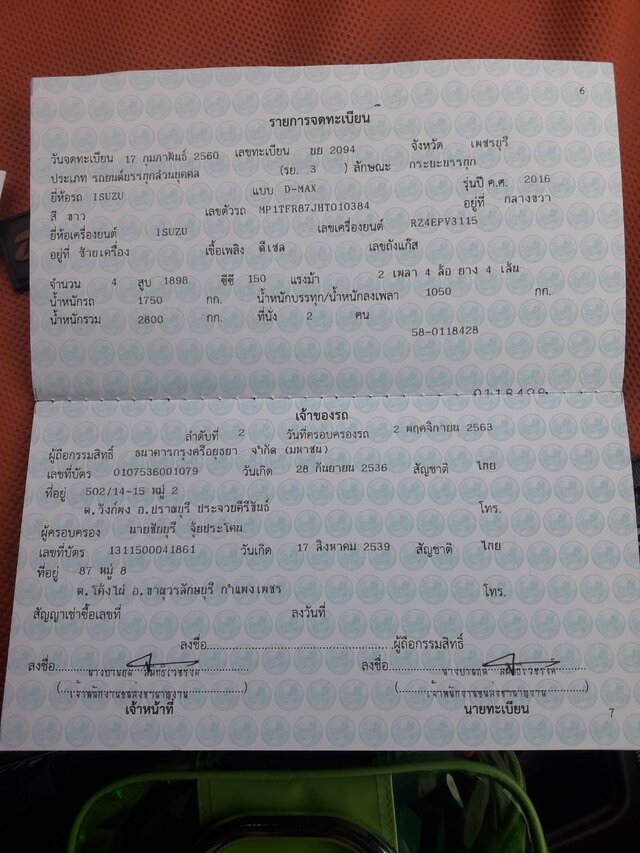 6
รายการจดทะเบียน
วันจดทะเบียน 17 กุมภาพันธ์ 2560 เลขทะเบียน 2094 จังหวัด เพชรบุรี
ประเภท รถยนต์บรรทุกส่วนบุคคล (รย. 3 ) ลักษณะ กระบะบรรทุก
ยี่ห้อรถ ISUZU แบบ D-MAX รุ่นปี ค.ศ. 2016
สี ขาว เลขตัวรถ MP1TFR87JHT010384 อยู่ที่ กลางขวา
ยี่ห้อเครื่องยนต์ ISUZU เลขเครื่องยนต์ RZ4EPV3115
อยู่ที่ ซ้ายเครื่อง เชื้อเพลิง ดีเซล เลขถังแก๊ส
จำนวน 4 สูบ 1898 ซีซี 150 แรงม้า 2 เพลา 4 ล้อ ยาง 4 เส้น
น้ำหนักรถ 1750 กก. น้ำหนักบรรทุก/น้ำหนักลงเพลา 1050 กก.
น้ำหนักรวม 2800 กก. ที่นั่ง 2 คน
58-0118428
เจ้าของรถ
ลำดับที่ 2 วันที่ครอบครองรถ 2 พฤศจิกายน 2563
ผู้ถือกรรมสิทธิ์ ธนาคารกรุงศรีอยุธยา จำกัด (มหาชน)
เลขที่บัตร 0107536001079 วันเกิด 28 กันยายน 2536 สัญชาติ ไทย
ที่อยู่ 502/14-15 หมู่ 2
ต.วังก์พง อ.ปราณบุรี ประจวบคีรีขันธ์ โทร.
ผู้ครอบครอง นายชัยบุรี จุ้ยประโคน
เลขที่บัตร 1311500041861 วันเกิด 17 สิงหาคม 2539 สัญชาติ ไทย
ที่อยู่ 87 หมู่ 8
ต.โค้งไผ่ อ.ขาณุวรลักษบุรี กำแพงเพชร โทร.
สัญญาเช่าซื้อเลขที่ ลงวันที่
ลงชื่อ ผู้ถือกรรมสิทธิ์
ลงชื่อ ลงชื่อ
(เจ้าพนักงานขนส่งชำนาญงาน) (เจ้าพนักงานขนส่งชำนาญงาน)
เจ้าหน้าที่ นายทะเบียน
7